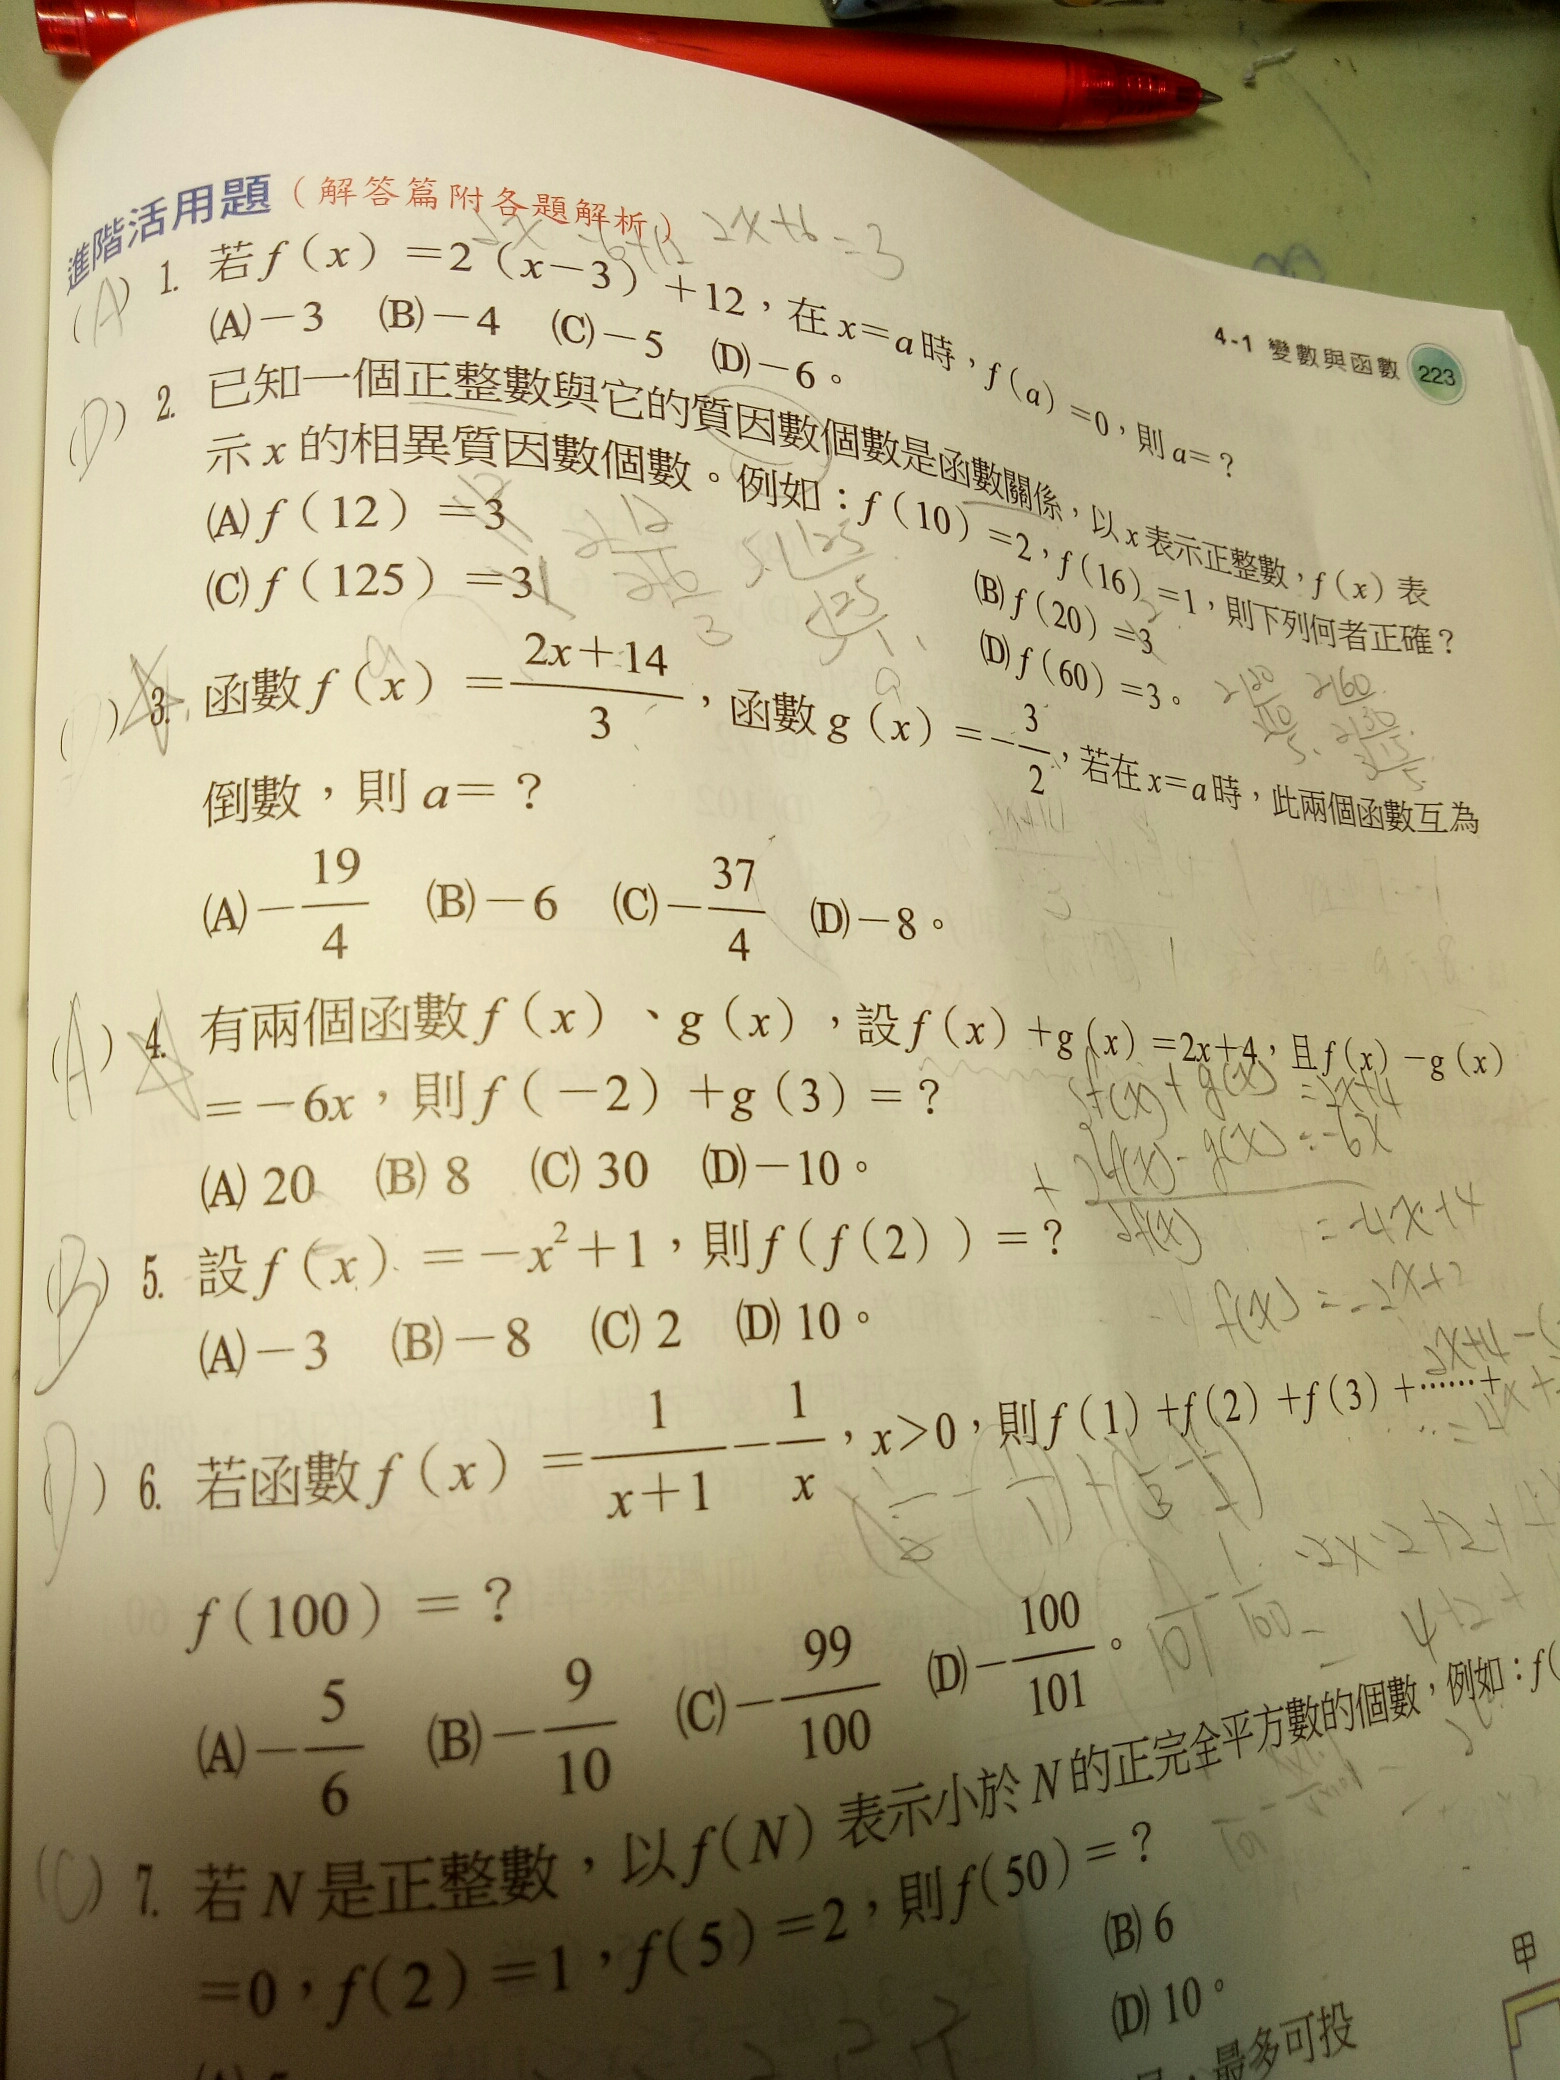 4-1 變數與函數 223
進階活用題（解答篇附各題解析）
2x -6+12 2x+6=3
(A) 1. 若f(x)=2(x-3)+12，在x=a時，f(a)=0，則a=？
(A)-3 (B)-4 (C)-5 (D)-6。
(D) 2. 已知一個正整數與它的質因數個數是函數關係，以x表示正整數，f(x)表
示x的相異質因數個數。例如：f(10)=2，f(16)=1，則下列何者正確？
(A)f(12)=3 (B)f(20)=3
(C)f(125)=3 (D)f(60)=3。
(D) 3. 函數f(x)=\frac{2x+14}{3}，函數g(x)=-\frac{3}{2}，若在x=a時，此兩個函數互為
倒數，則a=？
(A)-\frac{19}{4} (B)-6 (C)-\frac{37}{4} (D)-8。
(A) 4. 有兩個函數f(x)、g(x)，設f(x)+g(x)=2x+4，且f(x)-g(x)
=-6x，則f(-2)+g(3)=？
f(x)+g(x)=2x+4
+ f(x)-g(x)=-6x
2f(x) =-4x+4
f(x)=-2x+2
(A) 20 (B) 8 (C) 30 (D)-10。
(B) 5. 設f(x)=-x²+1，則f(f(2))=？
(A)-3 (B)-8 (C) 2 (D) 10。
(D) 6. 若函數f(x)=\frac{1}{x+1}-\frac{1}{x}，x>0，則f(1)+f(2)+f(3)+……+
f(100)=？
(A)-\frac{5}{6} (B)-\frac{9}{10} (C)-\frac{99}{100} (D)-\frac{100}{101}。
(C) 7. 若N是正整數，以f(N)表示小於N的正完全平方數的個數，例如：f(
=0，f(2)=1，f(5)=2，則f(50)=？
(B) 6
(D) 10。
甲
最多可投